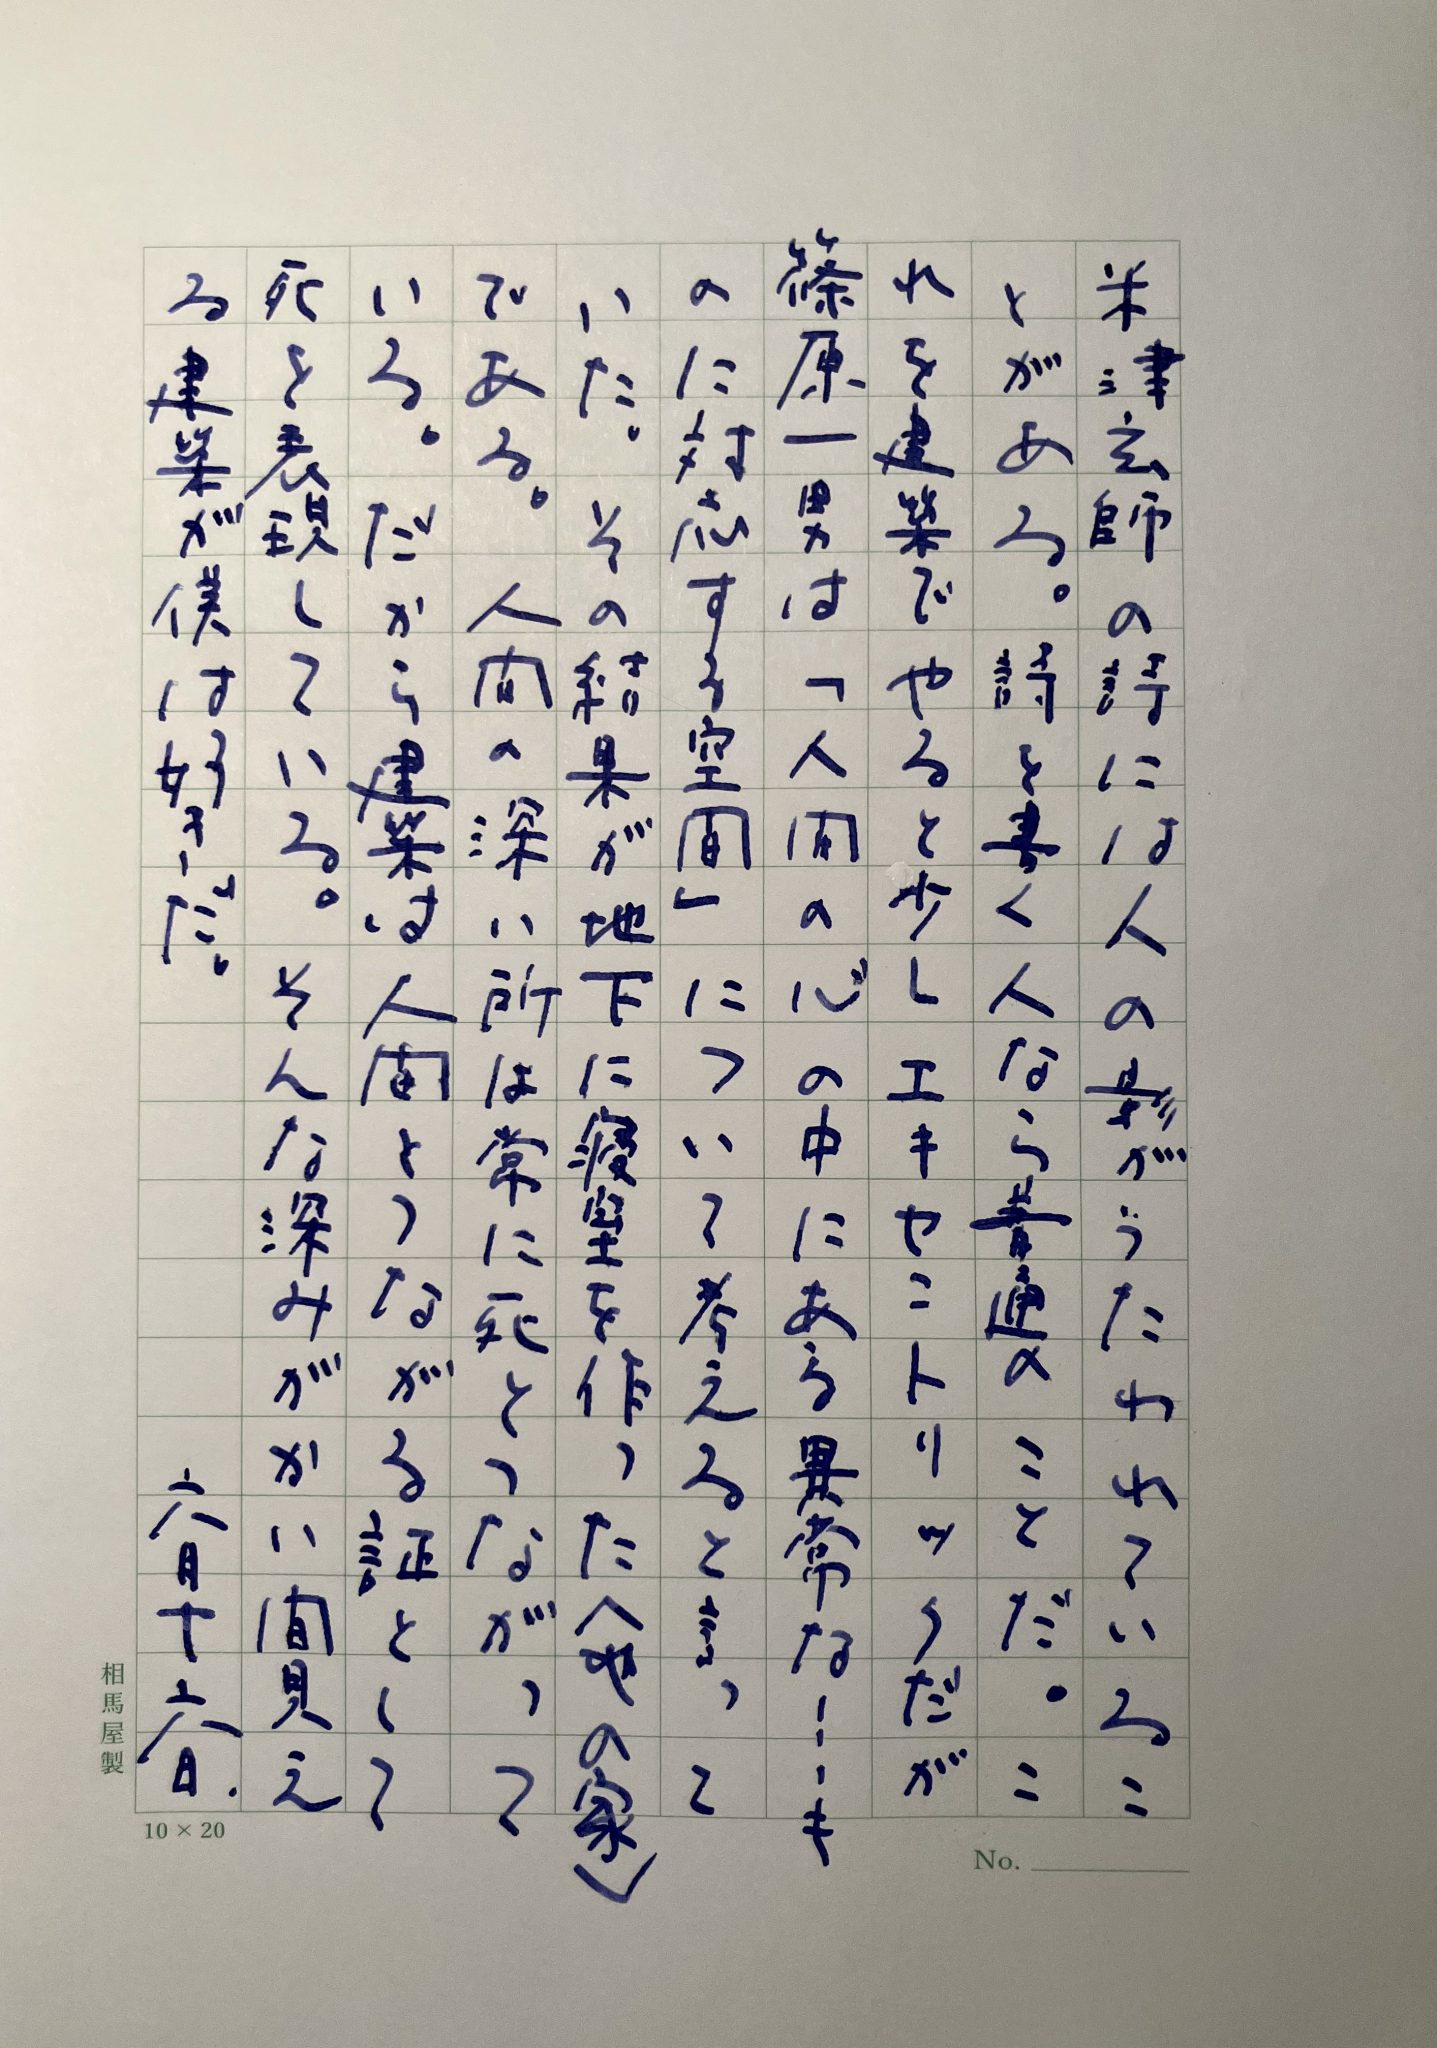 米津玄師の詩には人の影がうたわれているこ
とがある。詩を書く人なら普通のことだ。こ
れを建築でやると少しエキセントリックだが
篠原一男は「人間の心の中にある異常なーーも
のに対応する空間」について考えると言って
いた。その結果が地下に寝室を作った〈地の家〉
である。人間の深い所は常に死とつながって
いる。だから建築は人間とつながる証として
死を表現している。そんな深みがかい間見え
る建築が僕は好きだ。
六月十六日.
相馬屋製
10 × 20
No.